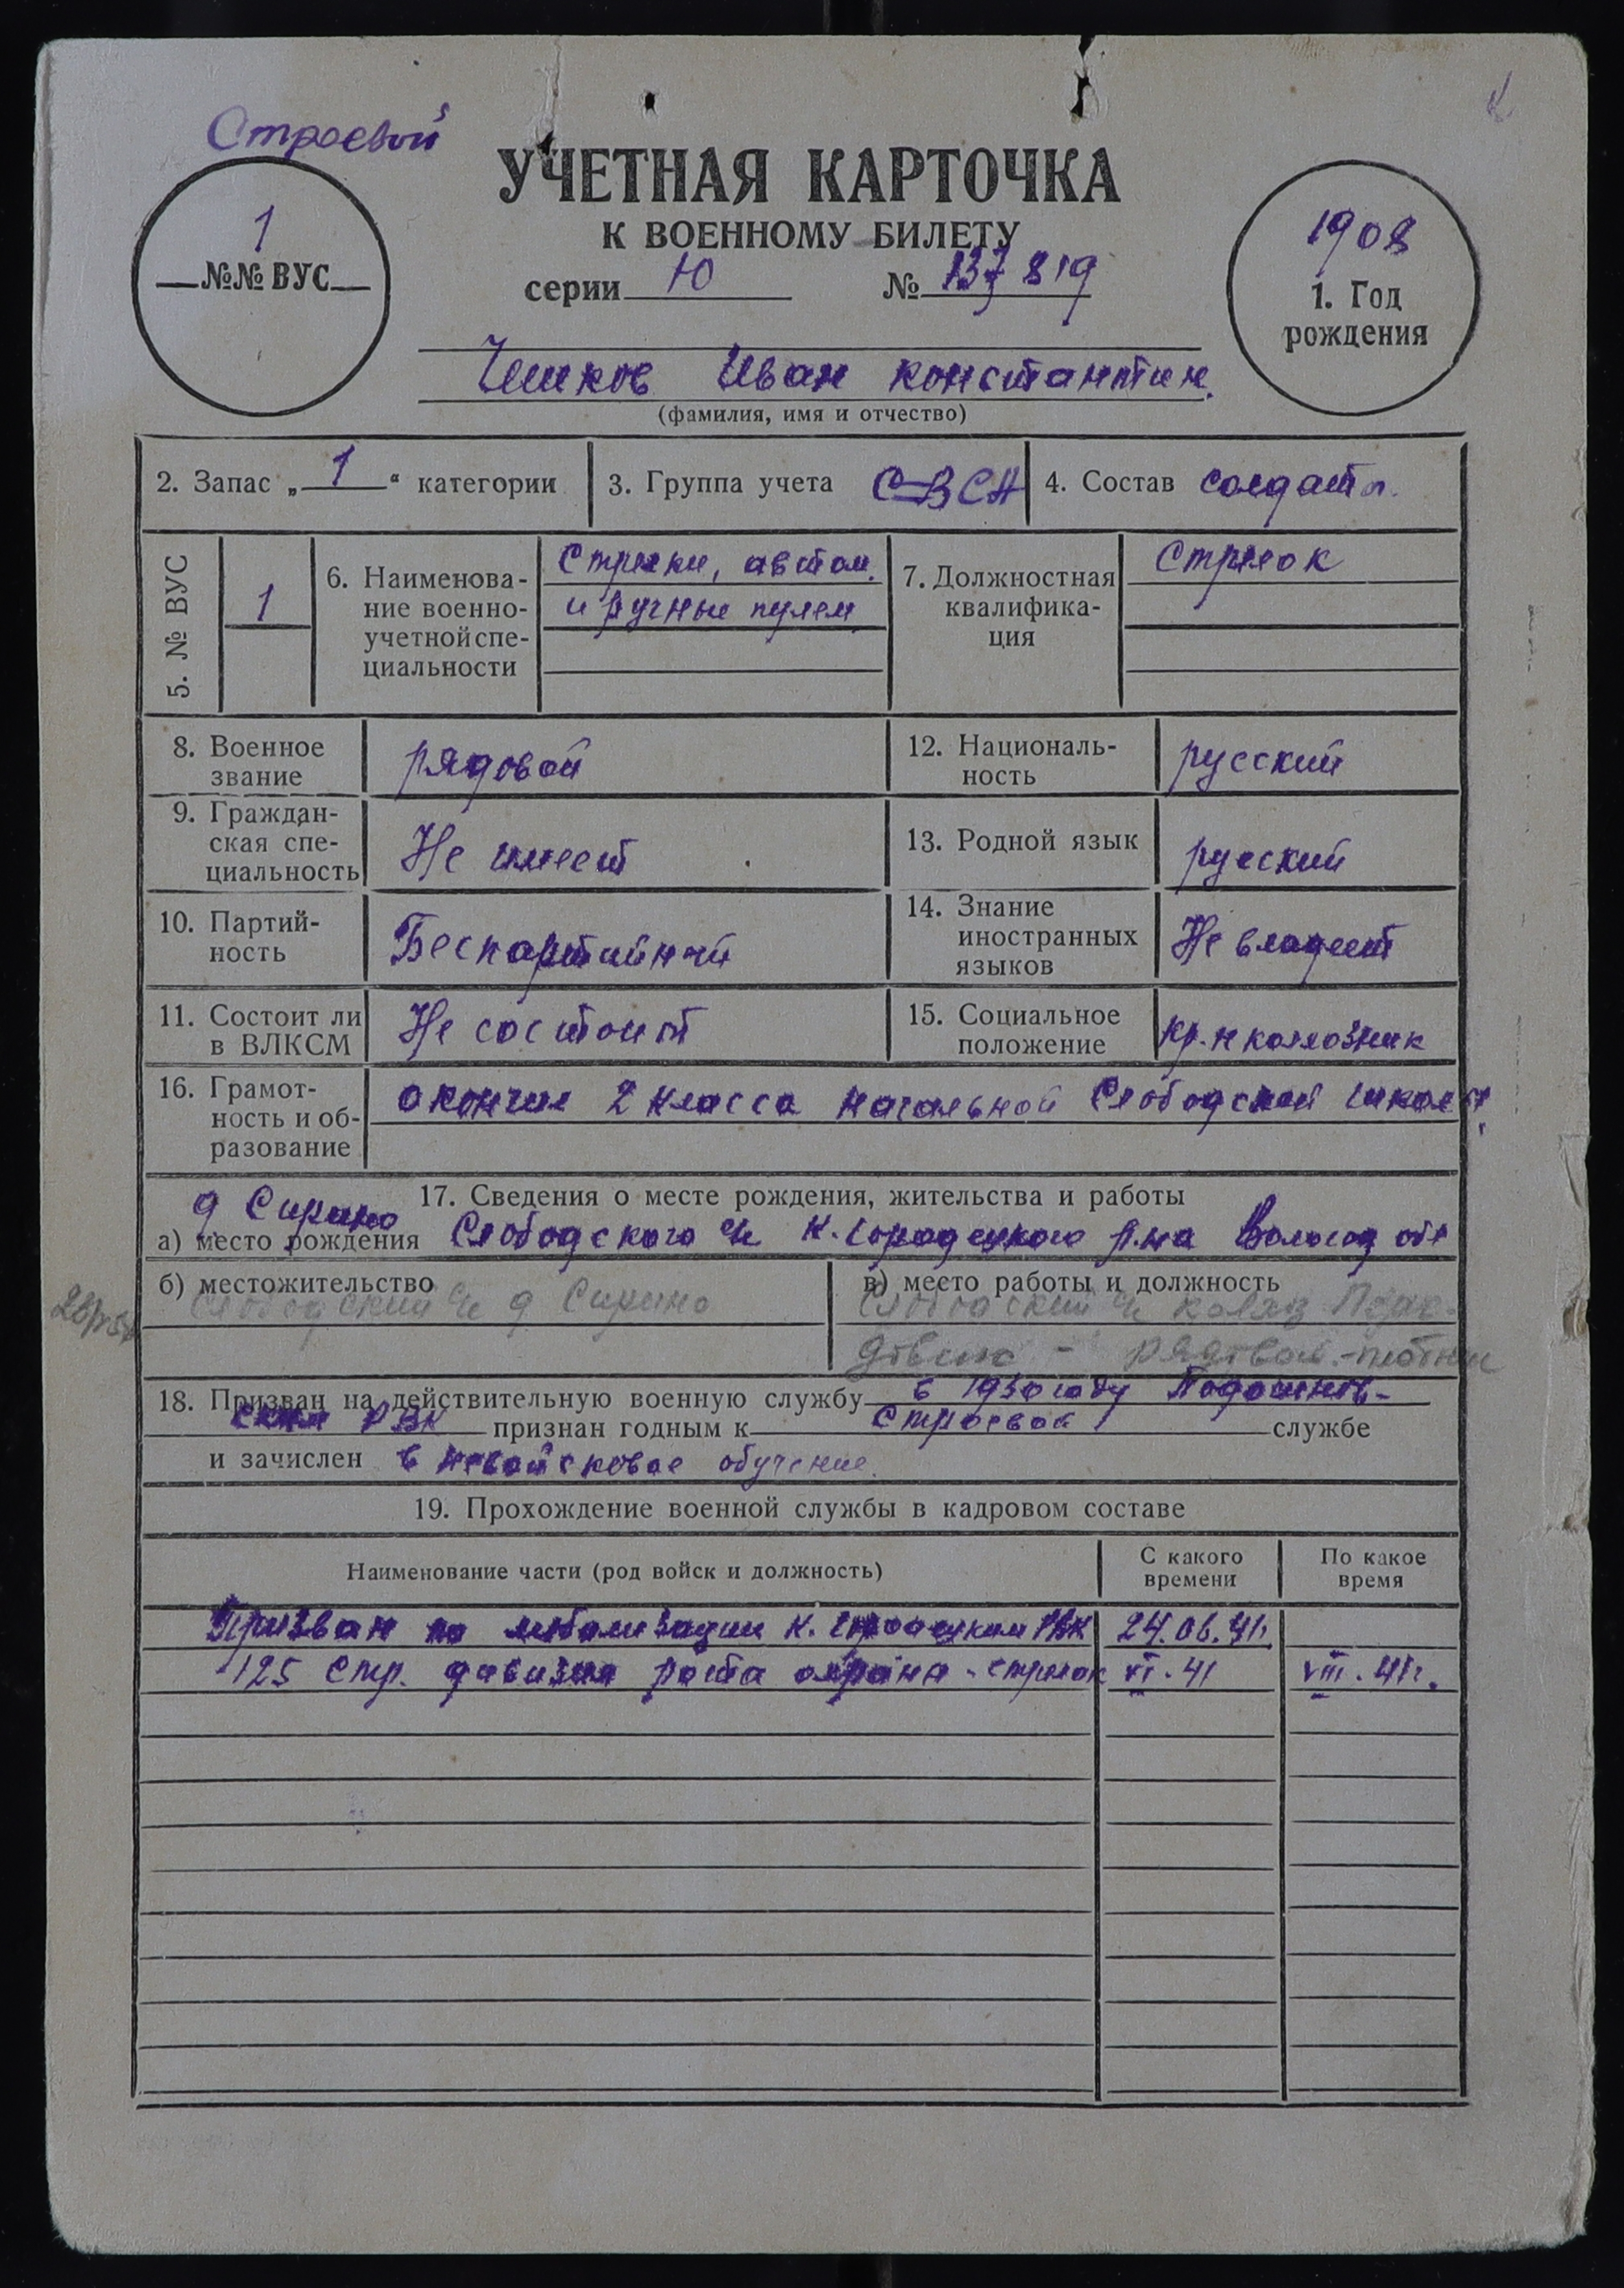 Строевой
УЧЕТНАЯ КАРТОЧКА
К ВОЕННОМУ БИЛЕТУ
серии Ю № 137819
1
№№ ВУС
1908
1. Год
рождения
Иван Константин.
(фамилия, имя и отчество)
2. Запас „1“ категории
3. Группа учета СВ СА
4. Состав солдаты.
5. № ВУС
1
6. Наименова-
ние военно-
учетной спе-
циальности
Стрелки, автом.
и ручные пулем.
7. Должностная
квалифика-
ция
Стрелок
8. Военное
звание
рядовой
12. Националь-
ность
русский
9. Граждан-
ская спе-
циальность
Не имеет
13. Родной язык
русский
10. Партий-
ность
Беспартийный
14. Знание
иностранных
языков
Не владеет
11. Состоит ли
в ВЛКСМ
Не состоит
15. Социальное
положение
кр-н колхозник
16. Грамот-
ность и об-
разование
окончил 2 класса начальной Слободской школы
17. Сведения о месте рождения, жительства и работы
д Сирино
а) место рождения Слободского с/с К. Городецкого р.на Вологод обл
б) местожительство
Слободский с/с д Сирино
в) место работы и должность
Слободский с/с колхоз
рядовой - плотник
18. Призван на действительную военную службу в 1930 году Подосинов-
ским РВК признан годным к Строевой службе
и зачислен в невойсковое обучение.
19. Прохождение военной службы в кадровом составе
Наименование части (род войск и должность)
С какого
времени
По какое
время
Призван по мобилизации К. Городецким РВК 24.06.41г.
125 Стр. дивизия рота охрана - стрелок VI.41 VIII.41г.